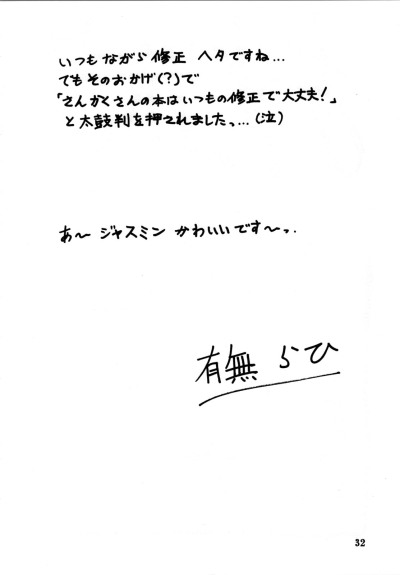 いつもながら修正 ヘタですね...
でもそのおかげ(?)で
「さんかくさんの本はいつもの修正で大丈夫!」
と太鼓判を押されましたっ...(泣)
あ〜 ジャスミン かわいいです〜っ.
有無らひ
32